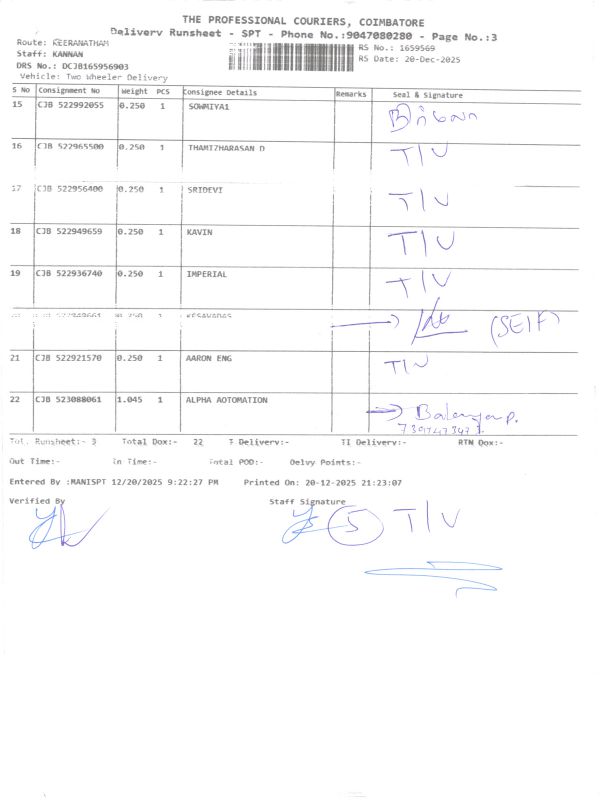 THE PROFESSIONAL COURIERS, COIMBATORE
Delivery Runsheet - SPT - Phone No.:9047080280 - Page No.:3
Route: KEERANATHAM
RS No.: 1659569
Staff: KANNAN
RS Date: 20-Dec-2025
DRS No.: DCJB165956903
Vehicle: Two Wheeler Delivery
S No Consignment No Weight PCS Consignee Details Remarks Seal & Signature
15 CJB 522992055 0.250 1 SOWMIYA1
16 CJB 522965500 0.250 1 THAMIZHARASAN D T/V
17 CJB 522956400 0.250 1 SRIDEVI T/V
18 CJB 522949659 0.250 1 KAVIN T/V
19 CJB 522936740 0.250 1 IMPERIAL T/V
CJB 522949661 0.250 1 KESAVADAS (SELF)
21 CJB 522921570 0.250 1 AARON ENG T/V
22 CJB 523088061 1.045 1 ALPHA AOTOMATION
Tot. Runsheet:- 3 Total Dox:- 22 T Delivery:- TI Delivery:- RTN Dox:-
Out Time:- In Time:- Total POD:- Delvy Points:-
Entered By :MANISPT 12/20/2025 9:22:27 PM Printed On: 20-12-2025 21:23:07
Verified By Staff Signature
5 T/V